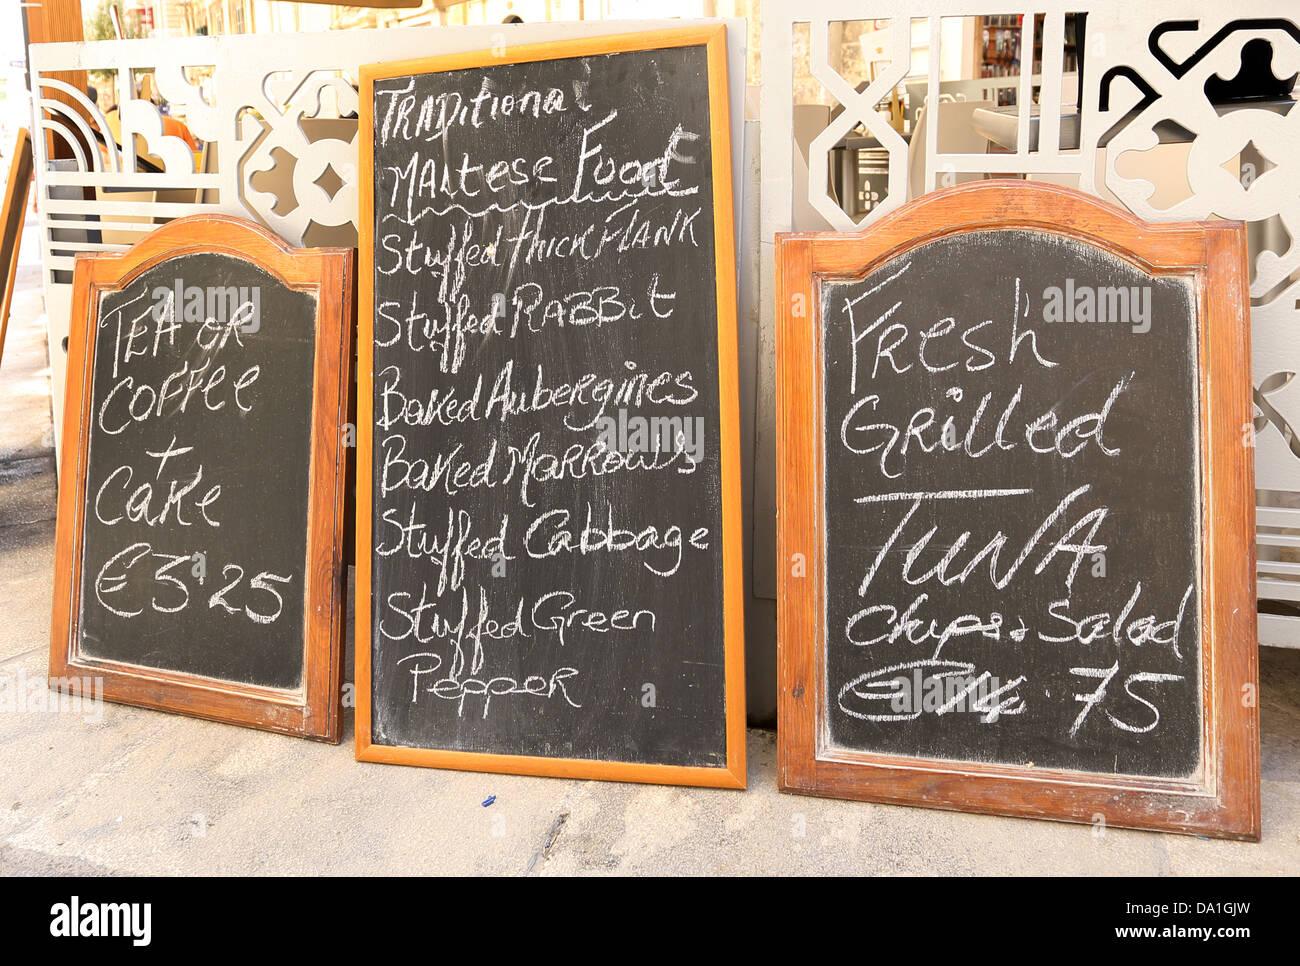 TEA OR
COFFEE
+
Cake
€3.25
TRADitional
MALtese Food
Stuffed thick FLANK
Stuffed RABBit
Baked Aubergines
Baked Marrows
Stuffed Cabbage
Stuffed Green
Pepper
Fresh
Grilled
TUNA
Chips & Salad
€14.75
alamy
alamy
Image ID: DA1GJW
www.alamy.com